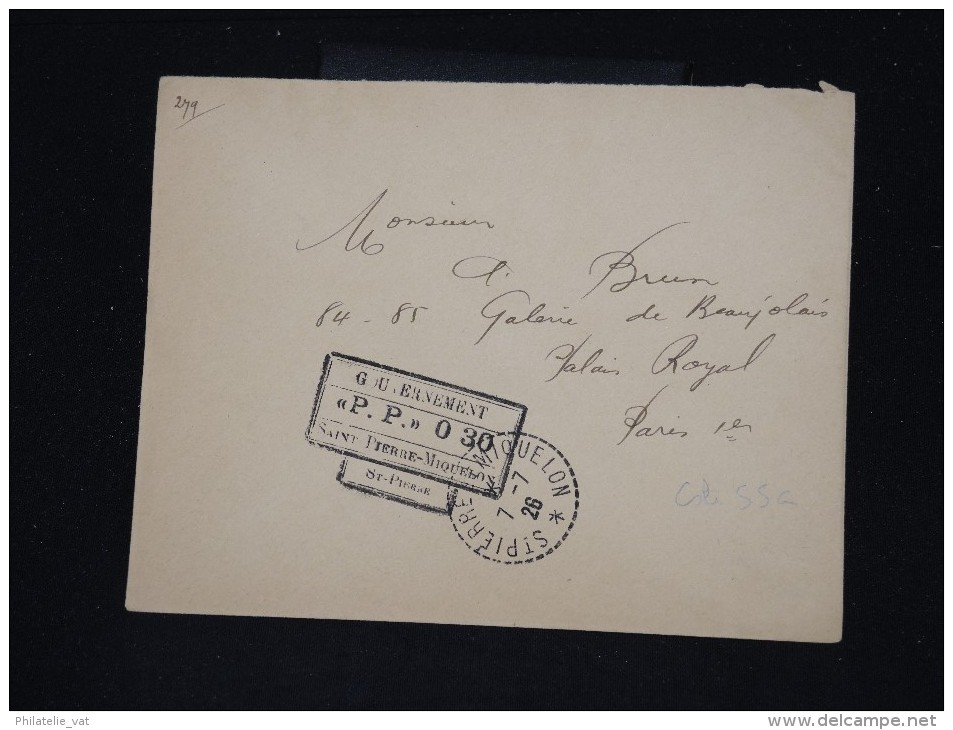 279
Monsieur
A. Brun
84 - 85 Galerie de Beaujolais
Palais Royal
Paris 1er
GOUVERNEMENT
«P. P.» 0 30
SAINT PIERRE-MIQUELON
ST-PIERRE
ST PIERRE MIQUELON
7 -7
26
Philatelie_vat
www.delcampe.net